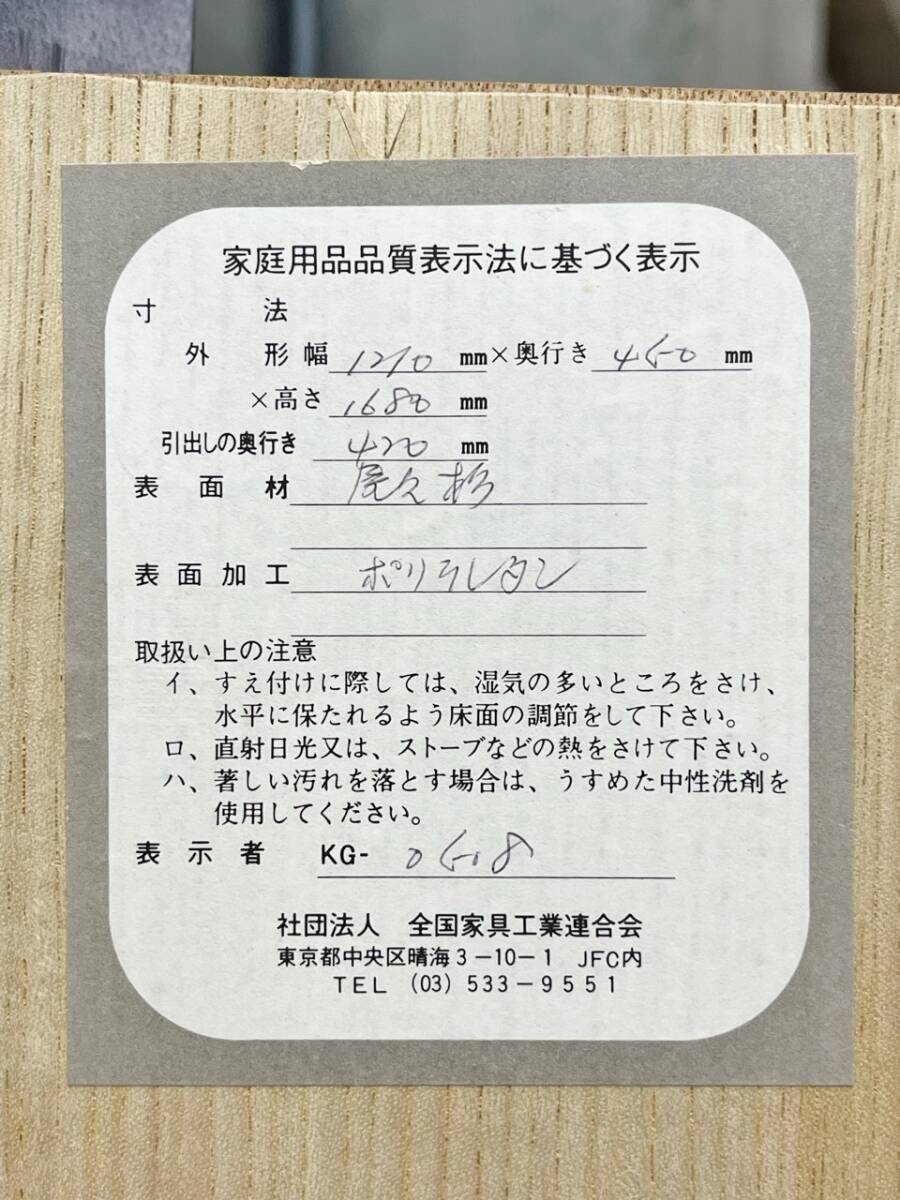 家庭用品品質表示法に基づく表示
寸法
外形幅 1210 mm×奥行き 450 mm
×高さ 1680 mm
引出しの奥行き 420 mm
表面材 尾久杉
表面加工 ポリウレタン
取扱い上の注意
イ、すえ付けに際しては、湿気の多いところをさけ、
水平に保たれるよう床面の調節をして下さい。
ロ、直射日光又は、ストーブなどの熱をさけて下さい。
ハ、著しい汚れを落とす場合は、うすめた中性洗剤を
使用してください。
表示者 KG-
社団法人 全国家具工業連合会
東京都中央区晴海3-10-1 JFC内
TEL (03) 533-9551